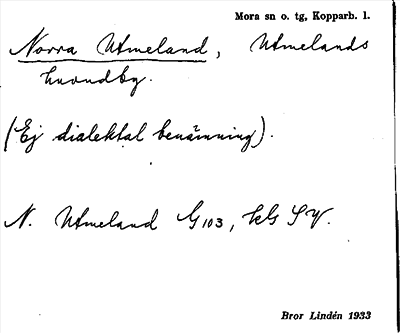 Mora sn o. tg, Kopparb. l.
Norra Utmeland, Utmelands
huvudby.
(Ej dialektal benämning).
N. Utmeland G103, kG SV.
Bror Lindén 1933